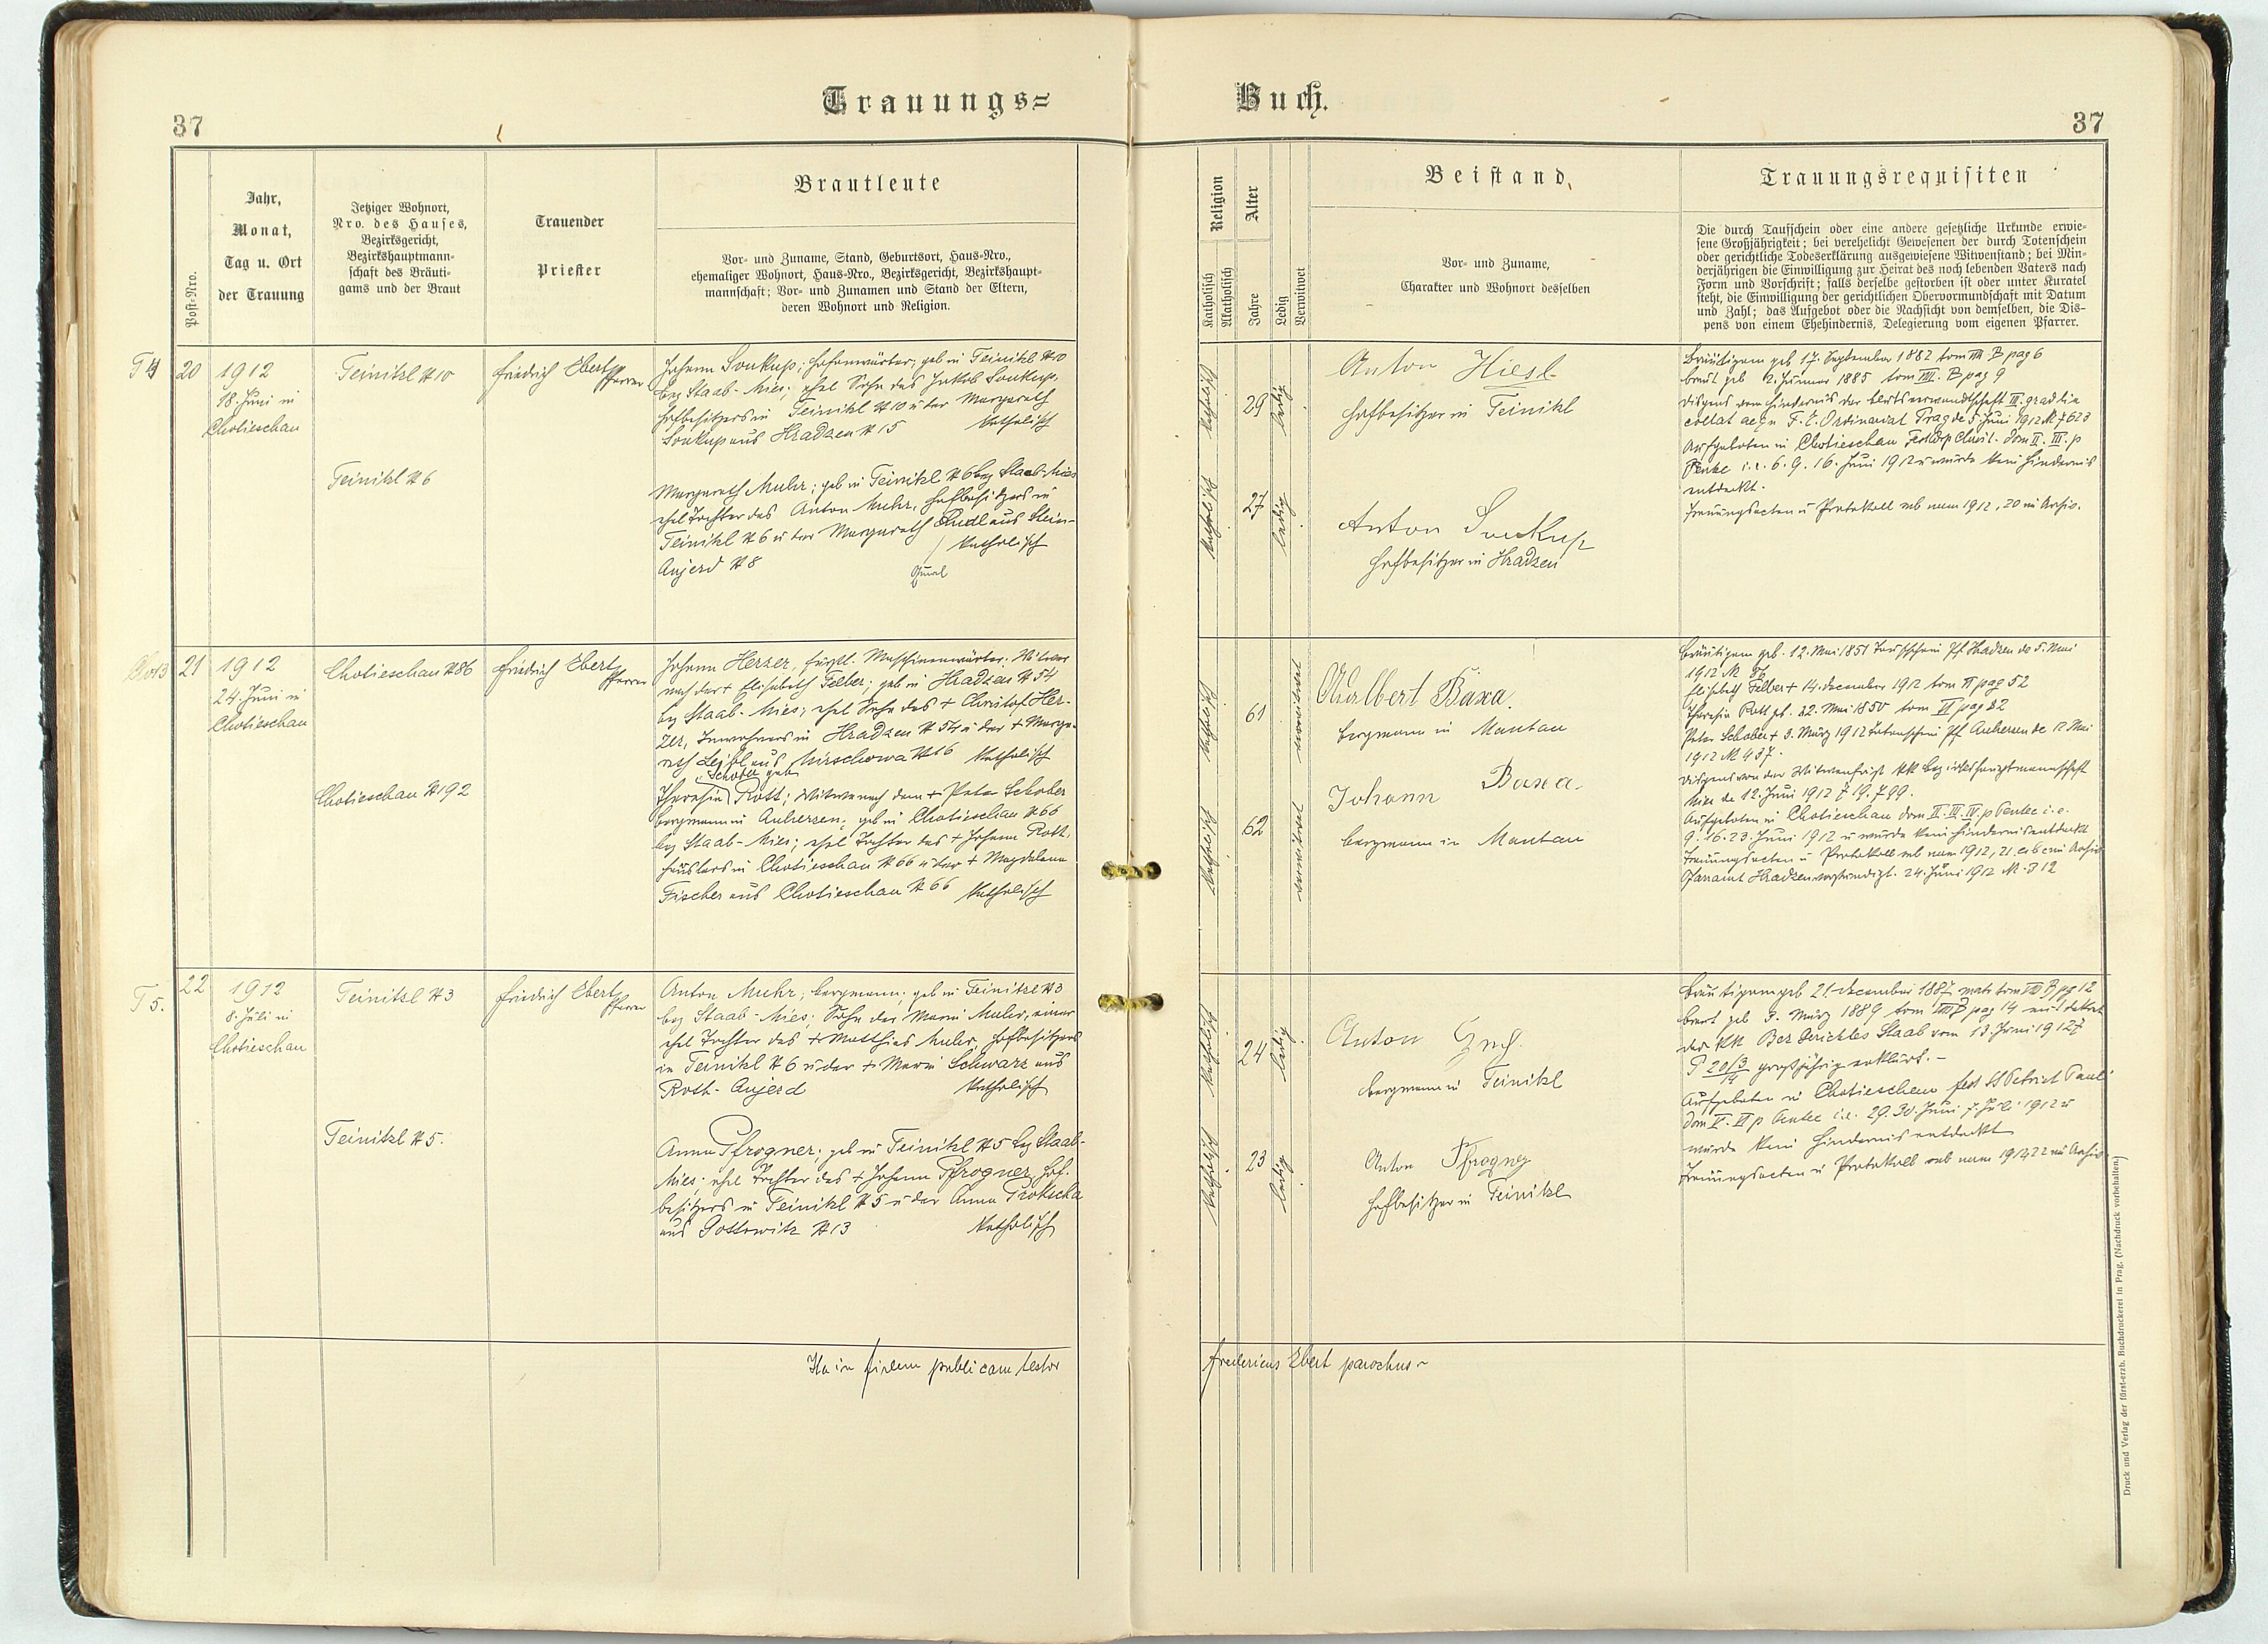 Trauungs=
Buch.
37
37
Post-Nro.
Jahr,
Monat,
Tag u. Ort
der Trauung
Jetziger Wohnort,
Nro. des Hauses,
Bezirksgericht,
Bezirkshauptmann-
schaft des Bräuti-
gams und der Braut
Trauender
Priester
Brautleute
Vor- und Zuname, Stand, Geburtsort, Haus-Nro.,
ehemaliger Wohnort, Haus-Nro., Bezirksgericht, Bezirkshaupt-
mannschaft; Vor- und Zunamen und Stand der Eltern,
deren Wohnort und Religion.
Religion
Katholisch
Akatholisch
Alter
Jahre
Ledig
Verwitwet
Beistand
Vor- und Zuname,
Charakter und Wohnort desselben
Trauungsrequisiten
Die durch Taufschein oder eine andere gesetzliche Urkunde erwie-
sene Großjährigkeit; bei verehelicht Gewesenen der durch Totenschein
oder gerichtliche Todeserklärung ausgewiesene Witwenstand; bei Min-
derjährigen die Einwilligung zur Heirat des noch lebenden Vaters nach
Form und Vorschrift; falls derselbe gestorben ist oder unter Kuratel
steht, die Einwilligung der gerichtlichen Obervormundschaft mit Datum
und Zahl; das Aufgebot oder die Nachsicht von demselben, die Dis-
pens von einem Ehehindernis, Delegierung vom eigenen Pfarrer.
20
1912
18. Juni in
Chotieschau
Teinitzl N 10
Friedrich Ebert
Pfarrer
Johann Soukup; geb in Teinitzl N 10
bez Staab-Mies; ehel Sohn des Jakob Soukup,
Hofbesitzers in Teinitzl N 10 u der Margareth
Soukup aus Hradzen N 15 katholisch
Teinitzl N 6
Margareth Muhr; geb in Teinitzl N 6 bez Staab-Mies
ehel Tochter des Anton Muhr, Hofbesitzers in
Teinitzl N 6 u der Margareth aus Stein-
Aujezd N 8 katholisch
katholisch
29
ledig
Anton Hiesl
Hofbesitzer in Teinitzl
katholisch
27
ledig
Anton Soukup
Hofbesitzer in Hradzen
Bräutigam geb 17. September 1882 tom pag 6
Braut geb 2. Jänner 1885 tom VIII. B pag 9
Dispens vom Hindernis der Blutsverwandtschaft III. grad
Ordinariat Prag de 5 Juni 1912 N 7623
Aufgeboten in Chotieschau dom II. III. p
Pente i.e. 6. 9. 16. Juni 1912 u wurde kein Hindernis
entdeckt.
Trauungsacten u Protokoll sub num 1912, 20 in Archiv.
21
1912
24. Juni in
Chotieschau
Chotieschau N 86
Friedrich Ebert
Pfarrer
Johann Herzer, fürstl. Maschinenwärter; Witwer
nach der + Elisabeth Felber; geb in Hradzen N 54
bez Staab-Mies; ehel Sohn des + Christof Her-
zer, Inwohners in Hradzen N 54 u der + Marga-
reth Leibl aus Mirschowa N 16 katholisch
Chotieschau N 192
Schober geb
Theresia Rott; Witwe nach dem + Peter Schober
Bergmann in Auherzen; geb in Chotieschau N 66
bez Staab-Mies; ehel Tochter des + Johann Rott,
Häuslers in Chotieschau N 66 u der + Magdalena
Fischer aus Chotieschau N 66 katholisch
katholisch
61
verwitwet
Adalbert Baxa.
Bergmann in Mantau
katholisch
62
verwitwet
Johann Baxa.
Bergmann in Mantau
Bräutigam geb. 12. Mai 1851 Taufschein Pf Hradzen de 5. Mai
1912 N 86
Elisabeth Felber + 14. December 1912 tom VI pag 52
Theresia Rott geb. 22. Mai 1850 tom VI pag 22
Peter Schober + 3. März 1912 Totenschein Pf Auherzen de 12 Mai
1912 N 437.
Dispens von der Witwenfrist KK Bezirkshauptmannschaft
Mies de 12. Juni 1912 Z 19.799.
Aufgeboten in Chotieschau dom II. III. IV. p Pentec i.e.
9. 16. 23. Juni 1912 u wurde kein Hindernis entdeckt
Trauungsacten u Protokoll sub num 1912, 21 in Archiv
Pfarramt Hradzen 24. Juni 1912 N 312
T 5.
22
1912
8. Juli in
Chotieschau
Teinitzl N 3
Friedrich Ebert
Pfarrer
Anton Muhr; Bergmann; geb in Teinitzl N 3
bez Staab-Mies; Sohn der Maria Muhr, einer
ehel Tochter des + Matthias Muhr, Hofbesitzers
in Teinitzl N 6 u der + Maria Schwarz aus
Roth-Aujezd katholisch
Teinitzl N 5.
Anna Pfrogner; geb in Teinitzl N 5 bez Staab-
Mies; ehel Tochter des + Johann Pfrogner, Hof-
besitzers in Teinitzl N 5 u der Anna Trotscha
aus Gottowitz N 13 katholisch
katholisch
24
ledig
Anton
Bergmann in Teinitzl
katholisch
23
ledig
Anton Pfrogner
Hofbesitzer in Teinitzl
Bräutigam geb 21. December 1887 tom VIII B pag 12
Braut geb 3. März 1889 tom VIII B pag 14 mit Dekret
des KK Bez Gerichtes Staab vom 13. Juni 1912
P 20/3 großjährig erklärt. –
Aufgeboten in Chotieschau fest SS Petri et Pauli
dom V. VI p Pentec i.e. 29. 30. Juni 7. Juli 1912 u
wurde kein Hindernis entdeckt
Trauungsacten u Protokoll sub num 1912, 22 in Archiv
Ita in fidem publicam testor
Fredericus Ebert parochus
Druck und Verlag der fürst-erzb. Buchdruckerei in Prag. (Nachdruck vorbehalten.)